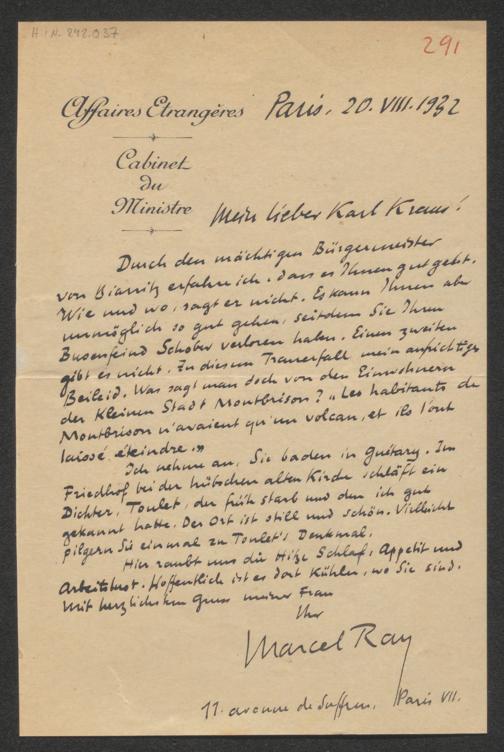 H.I.N. 242.037
291
Affaires Etrangères
Paris, 20. VIII. 1932
Cabinet
du
Ministre
Mein lieber Karl Kraus!
Durch den mächtigen Bürgermeister
von Biarritz erfahre ich, dass es Ihnen gut geht.
Wie und wo, sagt er nicht. Es kann Ihnen aber
unmöglich so gut gehen, seitdem Sie Ihren
Busenfeind Schober verloren haben. Einen zweiten
gibt es nicht. Zu diesem Trauerfall mein aufrichtiges
Beileid. Was sagt man doch von den Einwohnern
der kleinen Stadt Montbrison? „Les habitants de
Montbrison n'avaient qu'un volcan, et ils l'ont
laissé éteindre."
Ich nehme an, Sie baden in Guétary. Im
Friedhof bei der hübschen alten Kirche schläft ein
Dichter, Toulet, der früh starb und den ich gut
gekannt hatte. Der Ort ist still und schön. Vielleicht
pilgern Sie einmal zu Toulet's Denkmal.
Hier raubt uns die Hitze Schlaf, Appetit und
Arbeitslust. Hoffentlich ist es dort kühler, wo Sie sind.
Mit herzlichstem Gruss meiner Frau
Ihr
Marcel Ray
11. avenue de Suffren, Paris VII.